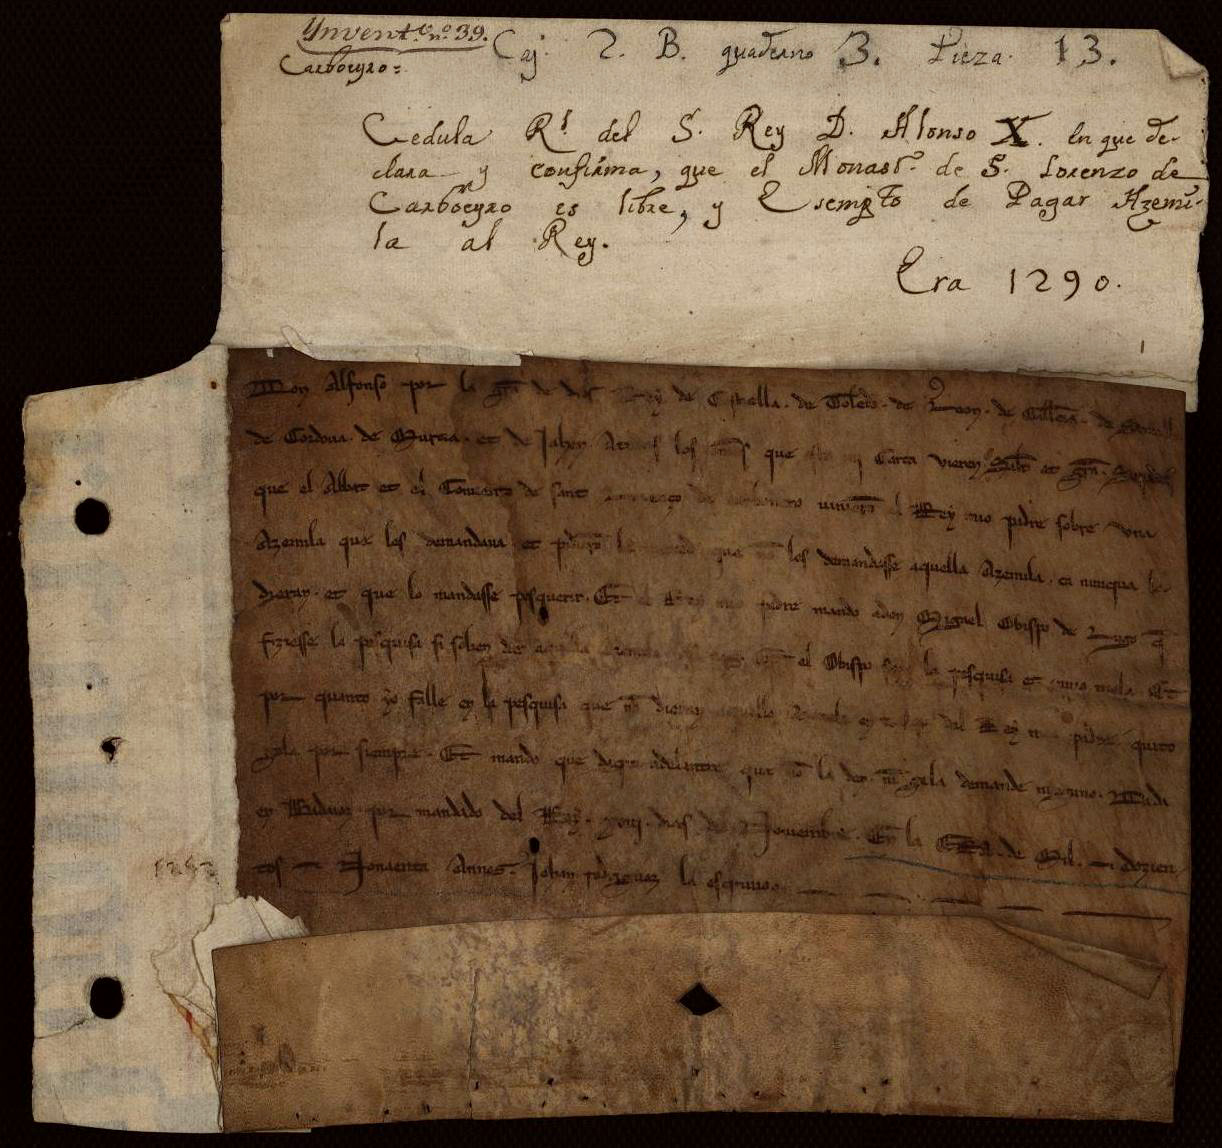 Ynvent.º nº 39.
Carboeyro=
Caj. 2. B. quaderno 3. Pieza. 13.
Cedula Rl. del S. Rey D. Alonso X. En que de-
clara y confirma, que el Monastº. de S. Lorenzo de
Carboeyro es libre, y Esempto de Pagar Azemi-
la al Rey.
Era 1290.
Don Alfonso por la gra de dios Rey de Castiella. de Toledo. de Leon. de Gallizia. de Seuill
de Cordoua. de Murcia. et de Jahen. A todos los que esta mi Carta vieren Salut et gra. Sepades
que el Abbat et el Conuento de sant de el Rey mio padre sobre una
Azemila que les demandaua et que no les demandasse aquella Azemila. ca nunqua la
dieran. et que lo mandasse pesquerir. Et el Rey mio padre mando a don Miguel Obispo de Lugo q
fiziesse la pesquisa si solien dar Et el Obispo fizo la pesquisa et enuio mela. Et
por quanto yo falle en la pesquisa que no dieran aquella Azemila en tiempo del Rey mio padre quito
gela por siempre. Et mando que daqui adelantre que no la den. nin gela demande ninguno. Dada
en por mandado del Rey. dias de Nouembre. En la Era. de Mil. Dozien
tos Nonaenta Annos. Johan la escriuio.
1252